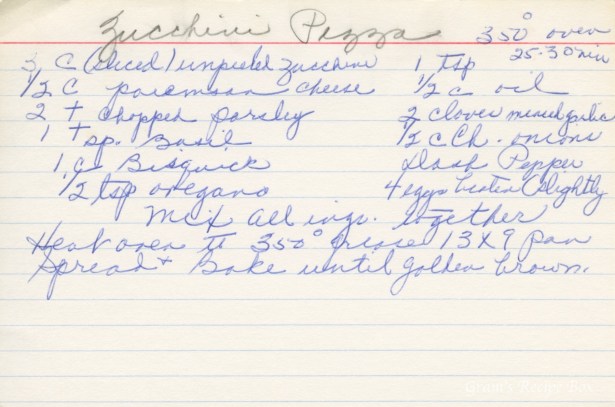 Zucchini Pizza 350° oven
25-30 min
3 C (sliced) unpeeled zucchini 1 tsp
1/2 C parmesan cheese 1/2 c oil
2 T chopped parsley 2 cloves minced garlic
1 tsp. Basil 1/2 c Ch. onions
1 c Bisquick Dash Pepper
1/2 tsp oregano 4 eggs beaten (slightly
Mix all ings. together
Heat oven to 350° Grease 13X9 pan
Spread + Bake until golden brown.
Gram's Recipe Box